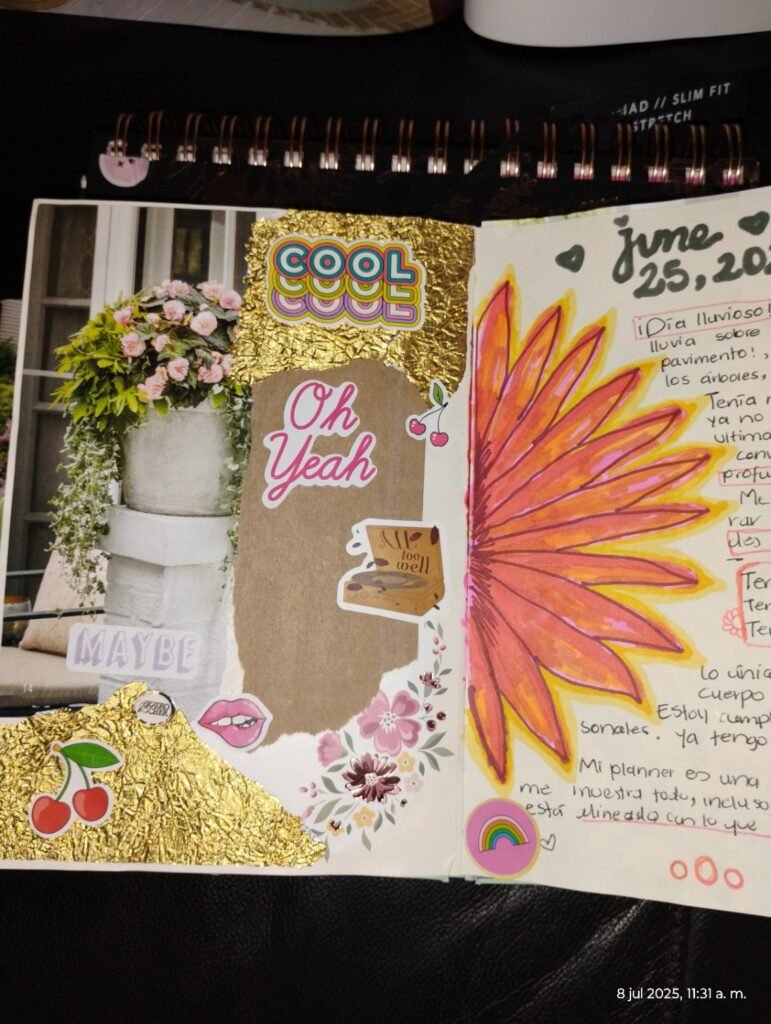 SLIM FIT
STRETCH
COOL
COOL
COOL
Oh
Yeah
All
too
well
MAYBE
14
FERRERO
ROCHER
june
25, 202
¡Día lluvioso!
lluvia sobre
pavimento!,
los árboles,
Tenía
ya no
ultima
profu
Me
rar
des
Ter
Ter
Ter
lo única
cuerpo
Estoy
sonales. Ya tengo
Mi planner es una
me muestra todo, incluso
está alineado con lo que
8 jul 2025, 11:31 a. m.